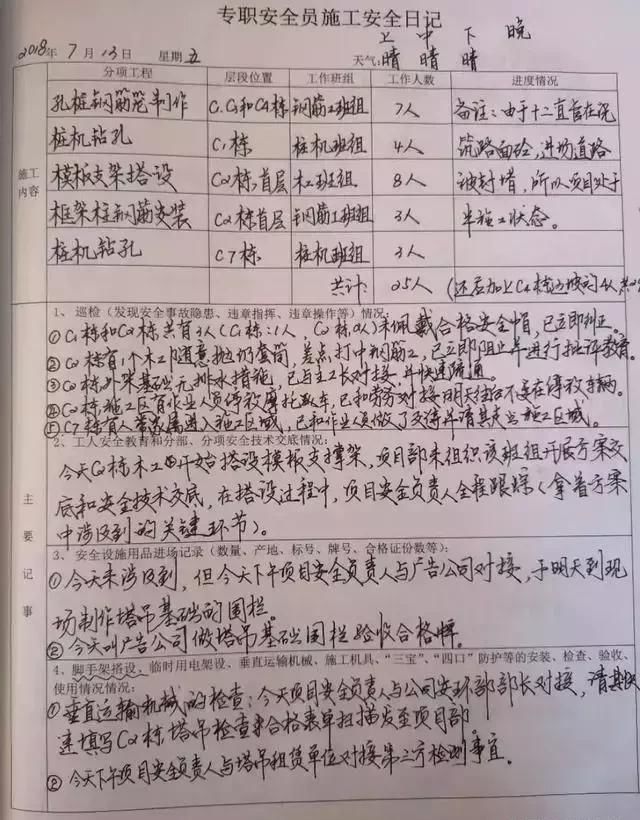 专职安全员施工安全日记
上 中 下 晚
2018年 7月 13日 星期五 天气: 晴 晴 晴
分项工程 层段位置 工作班组 工作人数 进度情况
孔桩钢筋笼制作 C1和C4栋 钢筋工班组 7人 备注:由于十二直管在浇
桩机钻孔 C1栋 桩机班组 4人 筑路面砼,进场道路
施工内容
模板支架搭设 C2栋首层 木工班组 8人 被封堵,所以项目处于
框架柱钢筋安装 C2栋首层 钢筋工班组 3人 半施工状态。
桩机钻孔 C7栋 桩机班组 3人
共计: 25人 (还应加上C4栋边坡的4人共
1、巡检(发现安全事故隐患、违章指挥、违章操作等)情况:
①C1栋和C2栋共有3人(C1栋:1人,C2栋2人)未佩戴合格安全帽,已立即纠正。
②C2栋有1个木工随意抛扔套筒,差点打中钢筋工,已立即阻止并进行批评教育。
③C2栋外架基础无排水措施,已与主工长对接,并快速疏通。
④C2栋施工区有作业人员停放摩托车,已和劳务对接明天往后不要在停放车辆。
⑤C7栋有人带家属进入施工区域,已和作业人员做了交涉并请其走出施工区域。
2、工人安全教育和分部、分项安全技术交底情况:
今天C2栋木工开始搭设模板支撑架,项目部未组织该班组开展方案交
底和安全技术交底,在搭设过程中,项目安全负责人全程跟踪(拿着方案
中涉及到的关键环节)。
主要记事
3、安全设施用品进场记录(数量、产地、标号、牌号、合格证份数等):
①今天未涉及到,但今天下午项目安全负责人与广告公司对接,于明天到现
场制作塔吊基础的围栏
②今天叫广告公司做塔吊基础围栏验收合格牌。
4、脚手架搭设、临时用电架设、垂直运输机械、施工机具、“三宝”、“四口”防护等的安装、检查、验收、
使用情况情况:
①垂直运输机械的检查:今天项目安全负责人与公司安环部部长对接,请其快
速填写C2栋塔吊检查合格表单扫描发至项目部。
②今天下午项目安全负责人与塔吊租赁单位对接第三方检测事宜。